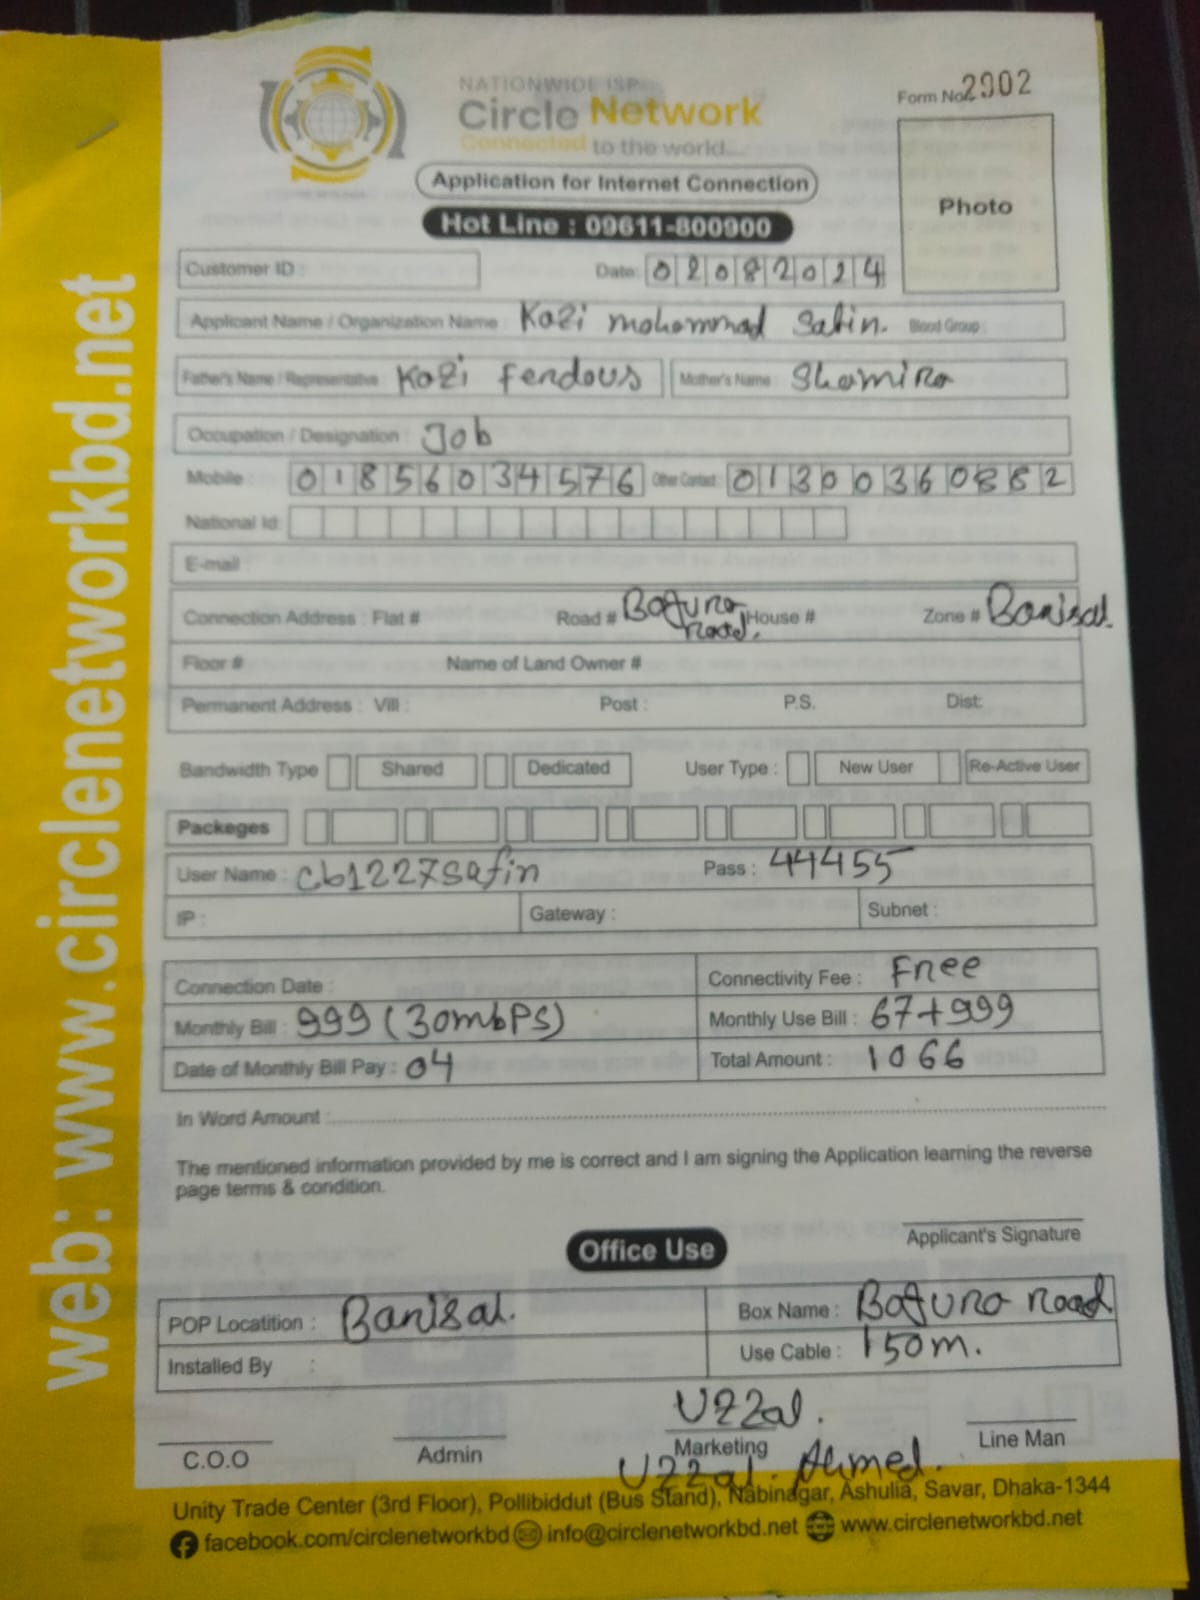 NATIONWIDE ISP
Circle Network
Connected to the world...
Form No. 2902
Photo
Application for Internet Connection
Hot Line : 09611-800900
Customer ID :
Date: 02082024
Applicant Name / Organization Name : Kazi mohammad Safin. Blood Group :
Father's Name / Representative : Kazi Ferdous Mother's Name : Shamira
Occupation / Designation : Job
Mobile : 01856034576 Other Contact : 01300360882
National Id:
E-mail :
Connection Address : Flat # Road # Bogura Road. House # Zone # Barisal.
Floor # Name of Land Owner #
Permanent Address : Vill : Post : P.S. Dist:
Bandwidth Type Shared Dedicated User Type : New User Re-Active User
Packeges
User Name : cb1227safin Pass : 44455
IP : Gateway : Subnet :
Connection Date : Connectivity Fee : Free
Monthly Bill : 999 (30mbPS) Monthly Use Bill : 67+999
Date of Monthly Bill Pay : 04 Total Amount : 1066
In Word Amount :
The mentioned information provided by me is correct and I am signing the Application learning the reverse
page terms & condition.
Applicant's Signature
Office Use
POP Locatition : Barisal. Box Name : Bogura Road
Installed By : Use Cable : 150m.
Uzzal.
C.O.O Admin Marketing Line Man
Uzzal. Ahmed.
Unity Trade Center (3rd Floor), Pollibiddut (Bus Stand), Nabinagar, Ashulia, Savar, Dhaka-1344
facebook.com/circlenetworkbd info@circlenetworkbd.net www.circlenetworkbd.net
web: www.circlenetworkbd.net